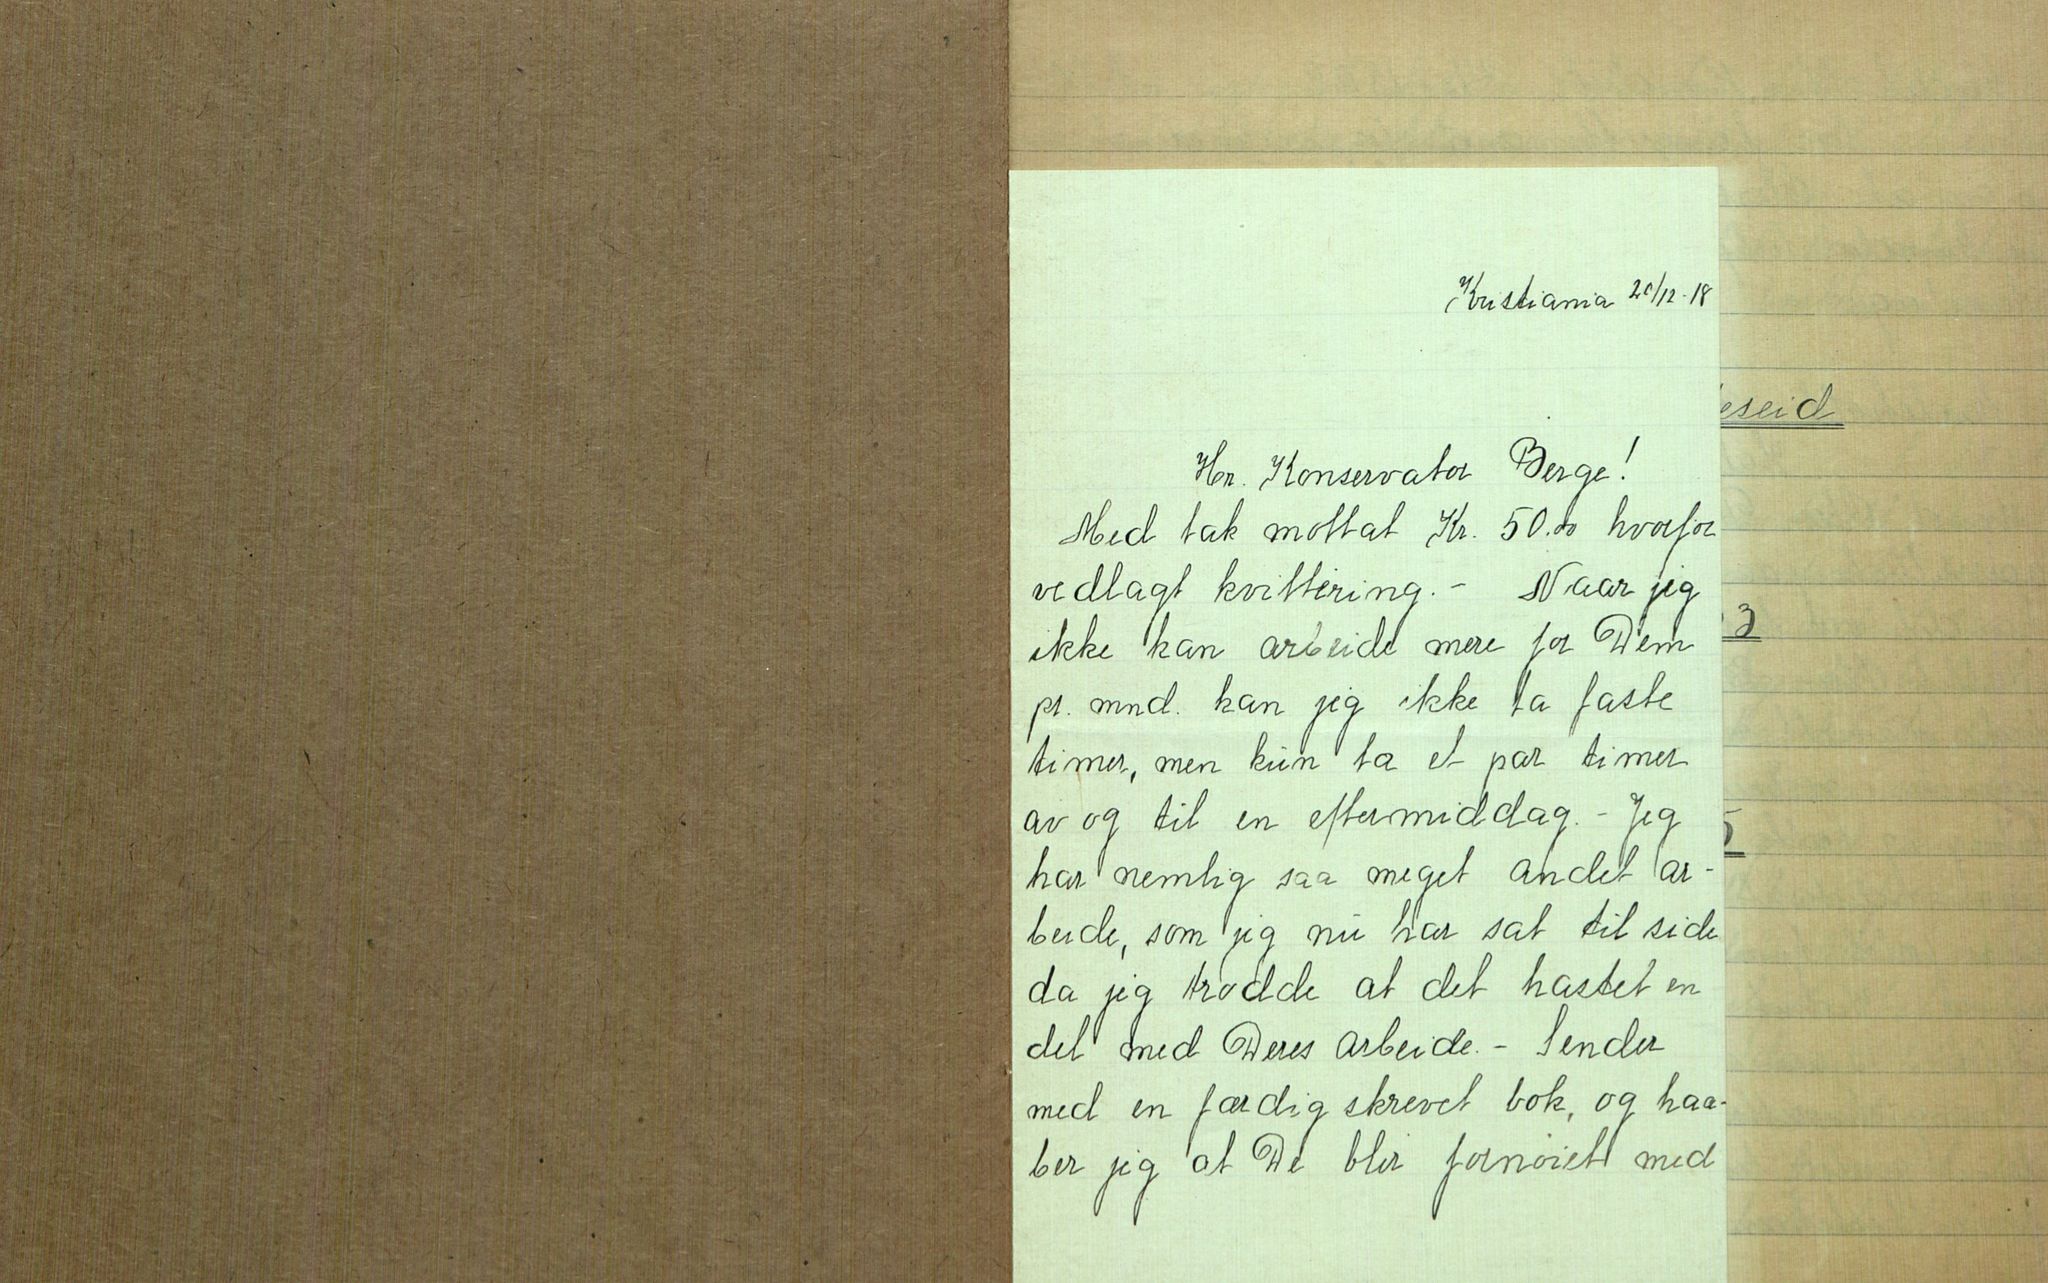 Kristiania 20/12-18
Hr. Konservator Berge!
Med tak mottat Kr. 50.00 hvorfor
vedlagt kvittering. - Naar jeg
ikke kan arbeide mere for Dem
pr. mnd. kan jeg ikke ta faste
timer, men kun ta et par timer
av og til en eftermiddag. - Jeg
har nemlig saa meget andet ar-
beide, som jeg nu har sat til side
da jeg trodde at det hastet en
del med Deres arbeide. - Sender
med en færdig skrevet bok, og haa-
ber jeg at De blir fornöiet med
eseid
3
5